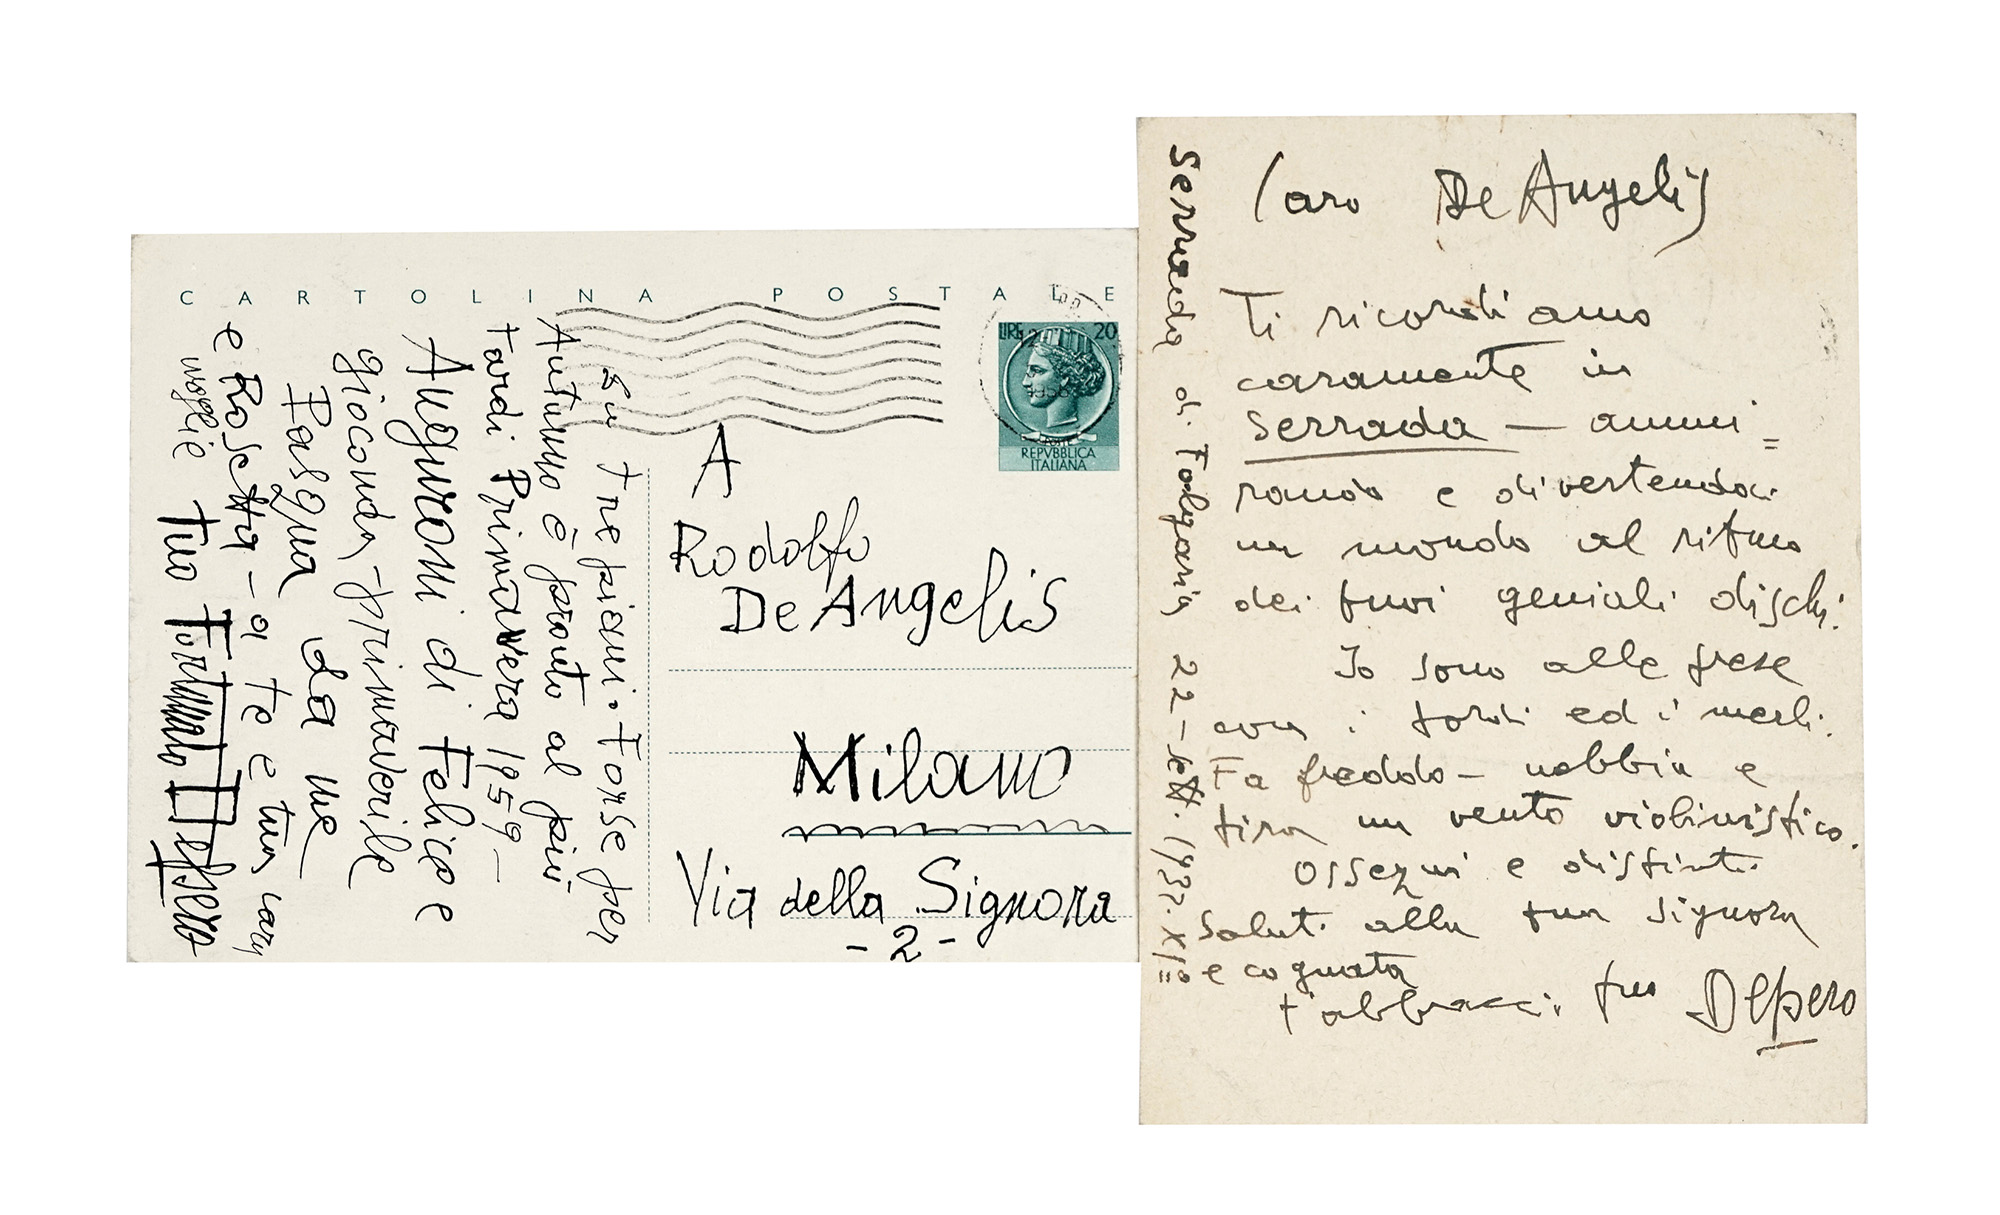 CARTOLINA POSTALE
LIRE 20
REPVBBLICA
ITALIANA
A
Rodolfo
De Angelis
Milano
Via della Signora
-2-
su tre piani. Forse per
Autunno è pronto al più
tardi Primavera 1959-
Auguroni di Felice e
gioconda, primaverile
Pasqua da me
e Rosetta - a te e tua cara
moglie Tuo Fortunato Depero
Serrada di Folgaria 22-sett. 1933. XI°
Caro De Angelis
Ti ricordiamo
caramente in
Serrada — ammi=
rando e divertendoci
un mondo al ritmo
dei tuoi geniali dischi.
Io sono alle prese
con i tordi ed i merli.
Fa freddo - nebbia e
tira un vento violinistico.
Ossequi e distinti
saluti alla tua Signora
e cognata
t'abbraccio tuo Depero